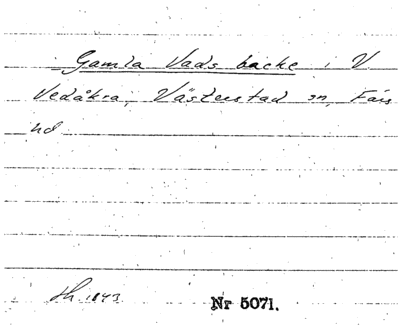 Gamla Vads backe i V.
Vedåkra, Västerstad sn, Färs
hd
1843
Nr 5071.